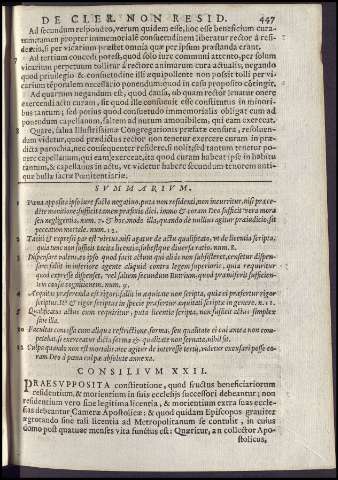 DE CLER. NON RESID. 447
Ad secundum respondeo, verum quidem esse, hoc esse beneficium cura-
tum, tamen propter immemorialē consuetudinem liberatur rector à resi-
dētia, si per vicarium præstet omnia quæ per ipsum præstanda erant.
7 Ad tertium concedi potest, quod solo iure communi attento, per solum
vicarium perpetuum tollitur à rectore animarum cura actualis, negando
quod privilegio & consuetudine illi æquipollente non possit tolli per vi-
carium tēporalem necessariò ponendum quod in casu proposito cōtingit.
Ad quartum negandum est, quod dicta, ob quam rector levatur onere
exercendi actu curam, sit quod ille constituit esse constitutus in minori-
bus tantum; sed potius quod consuetudo immemorialis obligat eum ad
ponendum capellanum, saltem ad nutum amovibilem, qui eam exerceat.
8 Quare, salva Illustrissimæ Congregationis præfatæ censura, resoluen-
dum videtur, quod prædictus rector non tenetur exercere curam in præ-
dicta parochia, nec consequenter residere, si nolit, sed tantum tenetur po-
nere capellanum, qui eam exerceat, ita quod curam habeat ipse in habitu
tantum, & capellanus in actu, vt videtur habere secundum tenorem anti-
quæ bullæ sacræ Pœnitentiariæ.
SVMMARIVM.
1 Pœna apposita ipso iure facto negativo, puta non residenti, non incurritur, nisi præce-
dente monitione, sufficit tamen præsens dici, immo & coram Deo sufficit vera mora
seu negligentia. num. 7. & hoc modo illa, quando de nullius agitur præiudicio sit
peccatum mortale. num. 12.
2 Taciti & expressi par est virtus, nisi agatur de actu qualificato, vt de licentia scripta,
quia tunc non sufficit tacita licentia, subestque diversa ratio. num. 8.
3 Dispensare valens, eo ipso quod facit actum qui aliàs non subsisteret, censetur dispen-
sare fallit in inferiore agente aliquid contra legem superioris, quia requiritur
quod expresse dispenset, vel saltem secundum Butrium, quod præmiserit sufficien-
tem causæ cognitionem. num. 9.
4 Æquitas præferenda est rigori, fallit in æquitate non scripta, quia ei præfertur rigor
scriptus. 11. & rigor scriptus in specie præfertur æquitati scriptæ in genere. n. 11.
5 Qualificatus actus cum requiritur, puta licentia scripta, non sufficit actus simplex
sine illa.
10 Facultas concessa cum aliqua restrictione, forma, seu qualitate ei cui antea non com-
petebat, si exerceatur dicta forma & qualitate non servata, nihil fit.
12 Culpa quando non est mortalis nec agitur de interesse tertij, videtur excusari posse co-
ram Deo à pœna culpæ absolutè annexa.
CONSILIVM XXII.
PRAESVPPOSITA constitutione, quod fructus beneficiariorum
residentium, & morientium in suis ecclesijs successori debeantur; non
residentium vero sine legitima licentia, & morientium extra suas eccle-
sias debeantur Cameræ Apostolicæ: & quod quidam Episcopus graviter
ægrotando sine tali licentia ad Metropolitanum se contulit, in cuius
domo post quatuor menses vita functus est: Quæritur, an collector Apo-
stolicus,